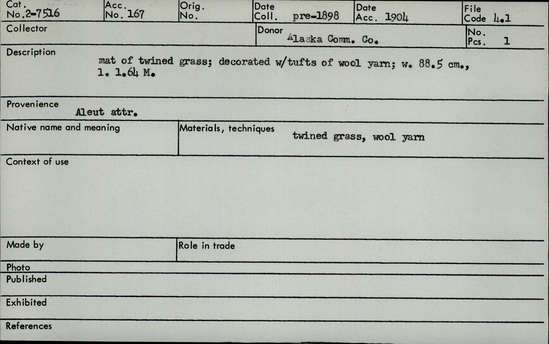 Cat. No. 2-7516 Acc. No. 167 Orig. No. Date Coll. pre-1898 Date Acc. 1904 File Code 4.1
Collector Donor Alaska Comm. Co. No. Pcs. 1
Description mat of twined grass; decorated w/tufts of wool yarn; w. 88.5 cm.,
l. 1.64 M.
Provenience
Aleut attr.
Native name and meaning Materials, techniques
twined grass, wool yarn
Context of use
Made by Role in trade
Photo
Published
Exhibited
References